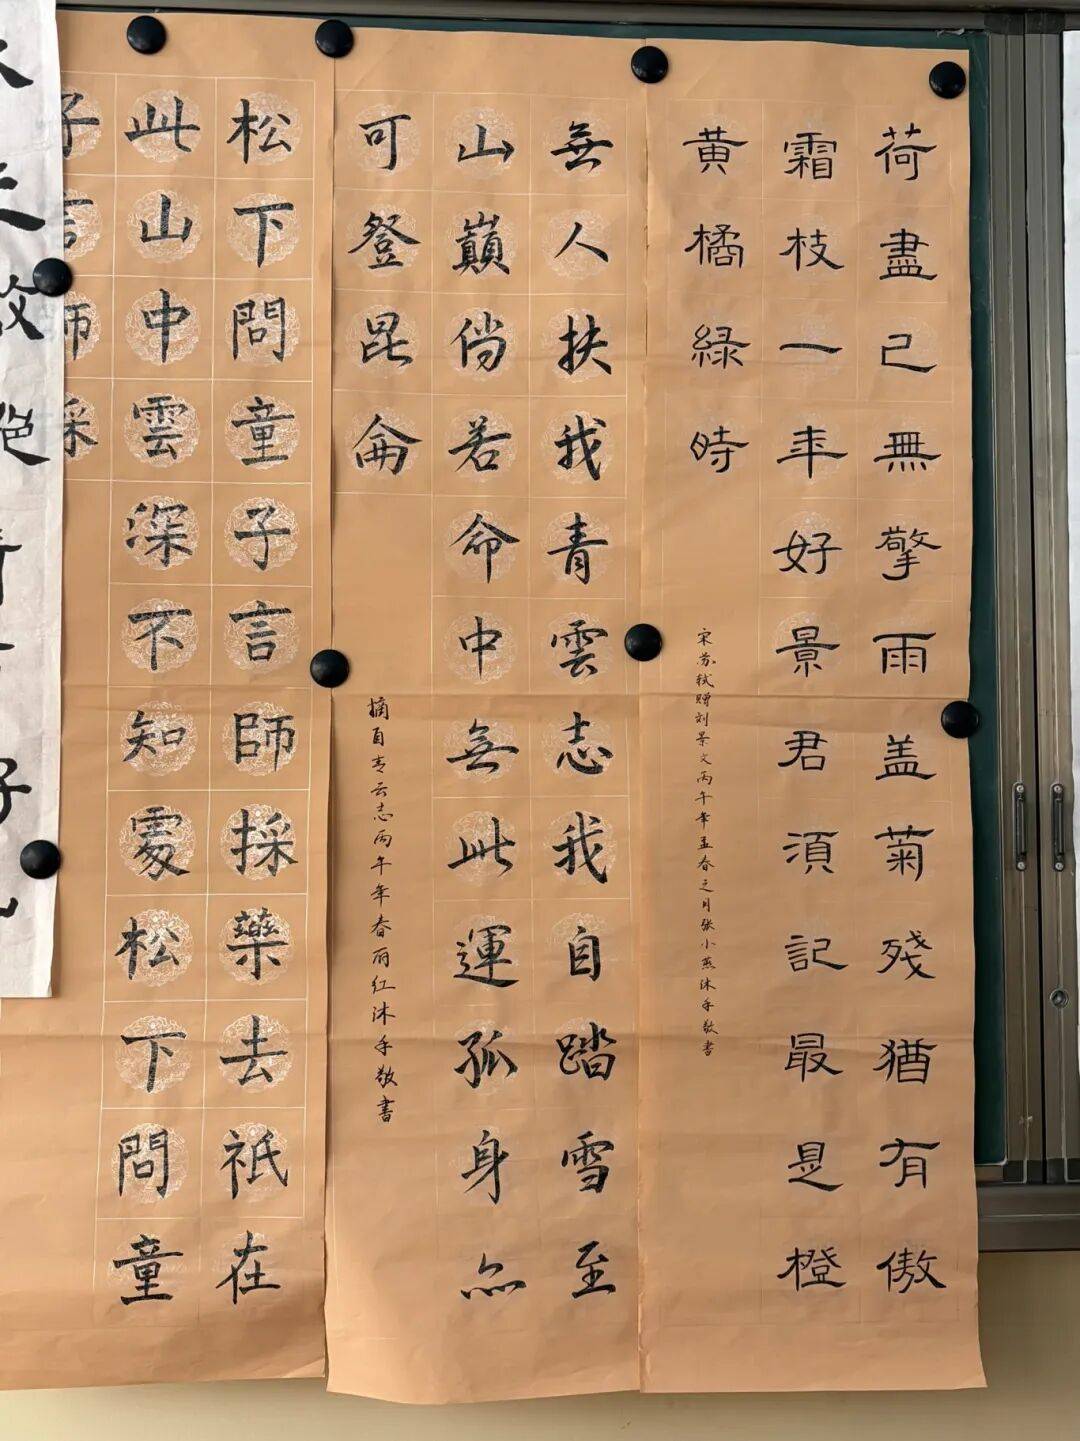 荷盡已無擎雨盖菊殘猶有傲
霜枝一年好景君須記最是橙
黄橘緑時
宋苏轼赠刘景文丙午年孟春之月张小燕沐手敬書
無人扶我青雲志我自踏雪至
山巔倘若命中無此運孤身亦
可登昆侖
摘自青云志丙午年春丽红沐手敬書
松下問童子言師採藥去祇在
此山中雲深不知處松下問童
子言師採